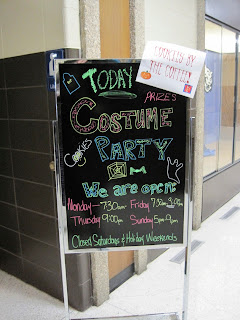 COOKIES BY
THE COFFEE!
TODAY
PRIZES
COSTUME
COOKIES
PARTY
We are open:
Monday-7:30am Friday 7:30am
Thursday 9:00pm Sunday 5pm-9pm
Closed Saturdays & Holiday Weekends